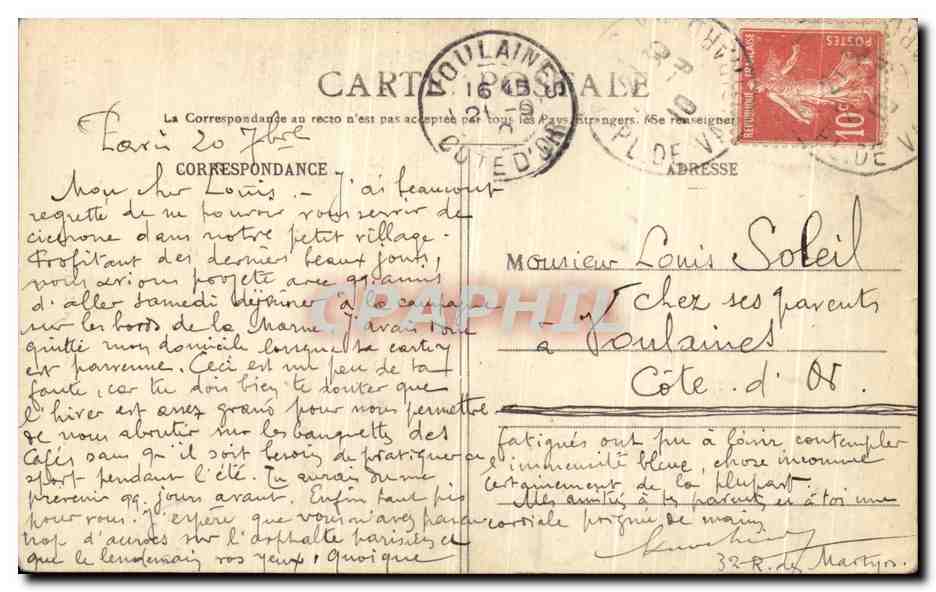 CARTE POSTALE
La Correspondance au recto n'est pas acceptée par tous les Pays Étrangers. (Se renseigner
VOULAINES
16 45
21 -9
COTE D'OR
PL. DE VA
10
REPUBLIQUE FRANÇAISE
POSTES
10c
Paris 20 7bre
CORRESPONDANCE
Mon cher Louis – J'ai beaucoup
regretté de ne pouvoir vous servir de
cicerone dans notre petit village.
Profitant des derniers beaux jours,
nous avions projeté avec qq. amis
d'aller samedi déjeuner à la campagne
sur les bords de la Marne. J'avais donc
quitté mon domicile lorsque ta carte y
est parvenue. Ceci est un peu de ta
faute, car tu dois bien te douter que
l'hiver est assez grand pour nous permettre
de nous abrutir sur les banquettes des
Cafés sans qu'il soit besoin de pratiquer ce
sport pendant l'été. Tu aurais dû me
prévenir qq. jours avant. Enfin tant pis
pour vous. J'espère que vous n'avez pas eu
trop d'accrocs sur l'asphalte parisien et
que le lendemain vos yeux, quoique
fatigués ont pu à loisir contempler
l'immensité bleue, chose inconnue
certainement de la plupart.
Mes amitiés à tes parents et à toi une
cordiale poignée de mains
32 R. des Martyrs.
ADRESSE
Monsieur Louis Soleil
chez ses parents
à Voulaines
Côte d'Or.
CPAPHIL